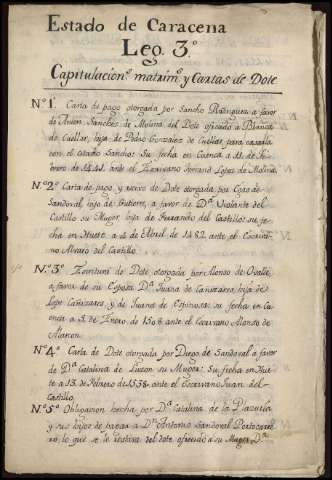 Estado de Caracena
Leg. 3º
Capitulacion.s matrim.s y Cartas de Dote
Nº 1º Carta de pago otorgada por Sancho Rodriguez a favor
de Anton Sanches de Molina del Dote ofrecido a Blanca
de Cuellar, hija de Pedro Gonzalez de Cuellar, para casarla
con el citado Sancho: Su fecha en Cuenca a 11 de Fe-
brero de 1441. ante el Escrivano Ferrand Lopez de Molina.
Nº 2º Carta de pago, y recivo de Dote otorgada por Cose de
Sandoval, hijo de Gutierre, a favor de Dª Violante del
Castillo su Muger, hija de Fernando del Castillo: su fe-
cha en Huete a 4 de Abril de 1482. ante el Escriva-
no Alvaro del Castillo.
Nº 3º Escritura de Dote otorgada por Alonso de Ovalle,
a favor de su Esposa Dª Juana de Cañizares, hija de
Lope Cañizares, y de Juana de Espinosa: su fecha en Cu-
enca a 3 de Enero de 1508 ante el Escrivano Alonso de
Alarcon.
Nº 4º Carta de Dote otorgada por Diego de Sandoval a favor
de Dª Catalina de Luzon su Muger: Su fecha en Hue-
te a 13 de Febrero de 1538. ante el Escrivano Juan del
Castillo.
Nº 5º Obligacion hecha por Dª Catalina de la
y sus hijos de pagar a Dⁿ Antonio Sandoval Portocarre-
ro, lo que se le restava del dote ofrecido a su Muger Dª